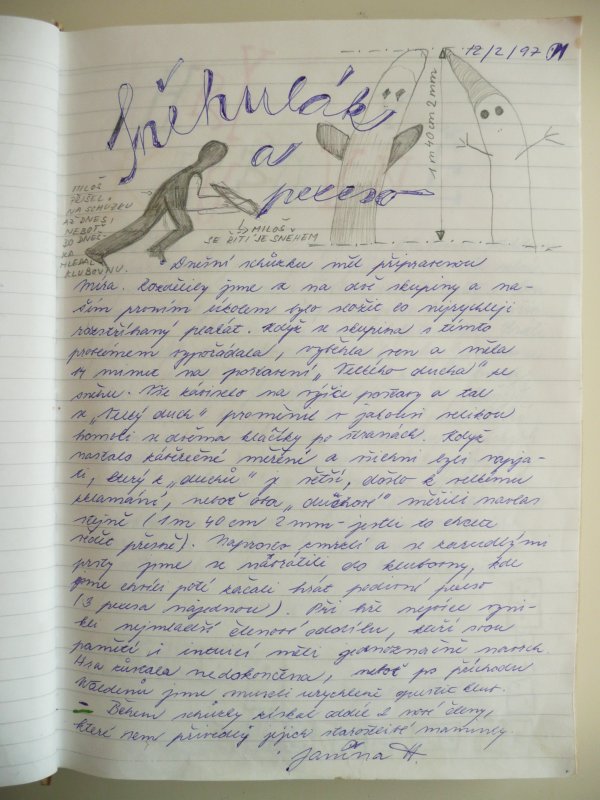 12/2/97
Sněhulák
a
pexeso
1 m 40 cm 2 mm
MILOŠ
PŘIŠEL
NA SCHŮZKU
AŽ DNES,
NEBOŤ
DO DNEŠ-
KA
HLEDAL
KLUBOVNU.
MILOŠ
SE ŘÍTÍ SE SNĚHEM
Dnešní schůzku měl připravenou
Míra. Rozdělily jsme se na dvě skupiny a na-
ším prvním úkolem bylo složit co nejrychleji
rozstříhaný plakát. Když se skupina s tímto
problémem vypořádala, vyběhla ven a měla
14 minut na postavení „Velkého ducha" ze
sněhu. Vše záviselo na výšce postavy a tak
se „Velký duch" proměnil v jakousi velikou
homoli se dvěma klacíky po stranách. Když
nastalo závěrečné měření a všichni byli napja-
ti, který z „duchů" je větší, došlo k velkému
zklamání, neboť oba „duchové" měřili navlas
stejně (1 m 40 cm 2 mm - jestli to chcete
vědět přesně). Naprosto zmrzlí a se zkřehlými
prsty jsme se navrátili do klubovny, kde
jsme chvíli poté začali hrát podivné pexeso
(3 pexesa najednou). Při hře nejvíce vyni-
kli nejmladší členové oddílu, kteří svou
pamětí i intuicí měli jednoznačně navrch.
Hra zůstala nedokončena, neboť po příchodu
jsme museli urychleně opustit klub.
- Během schůzky získal oddíl 2 nové členy,
které sem přivedly jejich starostlivé maminky.
Janina H.